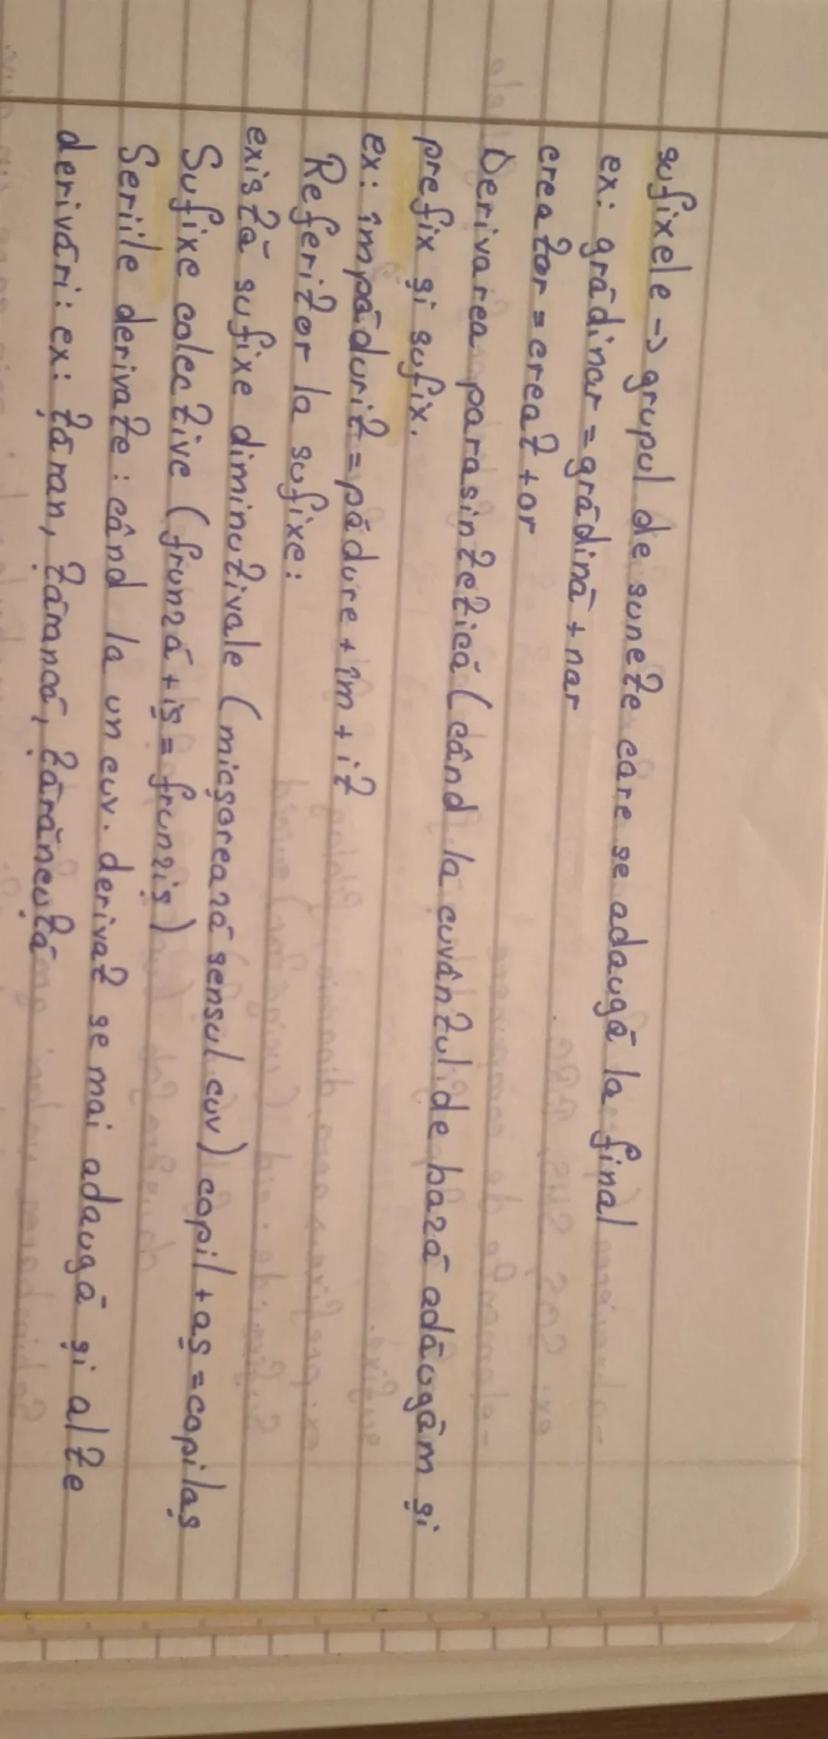 sufixele → grupul de sunete care se adaugă la final
ex: grădinar = grădină + nar
creator = creat + or
Derivarea parasintetică (când la cuvântul de bază adăugăm și
prefix și sufix.
ex: împădurit = pădure + îm + it
Referitor la sufixe:
există sufixe diminutivale (micșorează sensul cuv) copil + aș = copilaș
Sufixe colective (frunză + iș = frunziș)
Seriile derivate: când la un cuv. derivat se mai adaugă și alte
derivări: ex: țăran, țărancă, țărăncuță